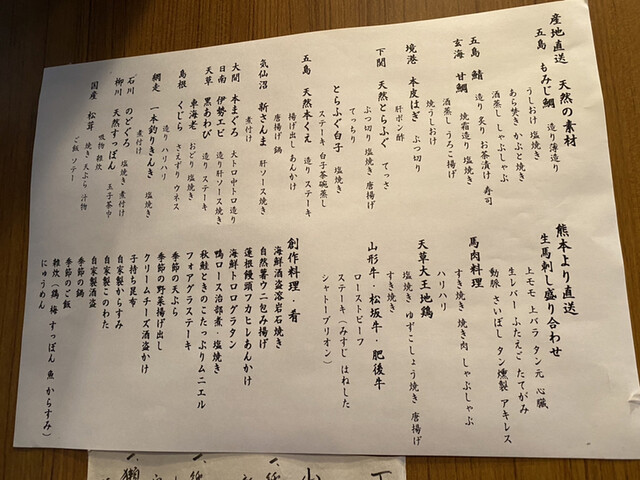 産地直送 天然の素材
五島 もみじ鯛 造り 薄造り
うしおけ 塩焼き
あら焚き かぶと焼き
酒蒸し しゃぶしゃぶ
五島 鯖 造り 炙り お茶漬け 寿司
玄海 甘鯛 焼霜造り 塩焼き
酒蒸し うろこ揚げ
焼うしおけ
境港 本皮はぎ ぶつ切り
肝ポン酢
下関 天然とらふぐ てっさ
ぶつ切り 塩焼き 唐揚げ
てっちり
とらふぐ白子 塩焼き
ステーキ 白子茶碗蒸し
五島 天然本くえ 造り ステーキ
揚げ出し あんかけ
気仙沼 新さんま 肝ソース焼き
唐揚げ 鍋
大間 本まぐろ 大トロ 中トロ 造り
煮付け
日南 伊勢エビ 造り 肝ソース焼き
天草 黒あわび 造り ステーキ
車海老 おどり 塩焼き
島根 くじら さえずり ウネス
造り ハリハリ
網走 一本釣りきんき 塩焼き
煮付け
石川 のどぐろ 塩焼き 煮付け
柳川 天然すっぽん 玉子茶巾
吸物 雑炊
国産 松茸 焼き 天ぷら 汁物
ご飯 ソテー
熊本より直送
生馬刺し盛り合わせ
上モモ 上バラ タン元 心臓
生レバー ふたえご たてがみ
動脈 さいぼし タン燻製 アキレス
馬肉料理
すき焼き 焼き肉 しゃぶしゃぶ
ハリハリ
天草大王地鶏
塩焼き ゆずこしょう焼き 唐揚げ
すき焼き
山形牛・松坂牛・肥後牛
ローストビーフ
ステーキ(みすじ はねした
シャトーブリオン)
創作料理 肴
海鮮酒盗溶岩石焼き
自然薯ウニ包み揚げ
蓮根饅頭フカヒレあんかけ
海鮮トロログラタン
鴨ロース治部煮・塩焼き
秋鮭ときのこたっぷりムニエル
フォアグラステーキ
季節の天ぷら
季節の野菜揚げ出し
クリームチーズ酒盗かけ
子持ち昆布
自家製からすみ
自家製このわた
自家製酒盗
季節の鍋
季節のご飯
雑炊(鶏 梅 すっぽん 魚 からすみ)
にゅうめん